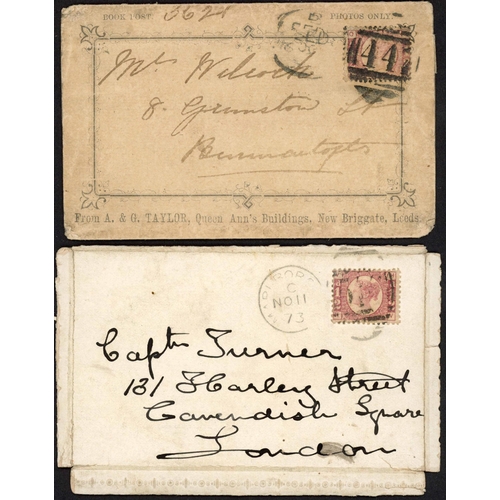 BOOK POST 5624 PHOTOS ONLY
447
Mrs Wilcock
8. Grimston St
Burmantofts
From A. & G. TAYLOR, Queen Ann's Buildings, New Briggate, Leeds.
MARLBORO
C
NO 11
73
Captn Turner
131 Harley Street
Cavendish Square
London